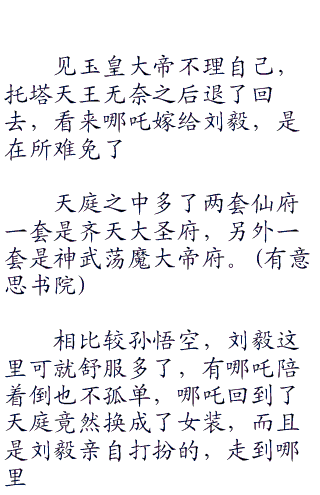 见玉皇大帝不理自己，
托塔天王无奈之后退了回
去，看来哪吒嫁给刘毅，是
在所难免了
天庭之中多了两套仙府
一套是齐天大圣府，另外一
套是神武荡魔大帝府。(有意
思书院)
相比较孙悟空，刘毅这
里可就舒服多了，有哪吒陪
着倒也不孤单，哪吒回到了
天庭竟然换成了女装，而且
是刘毅亲自打扮的，走到哪
里